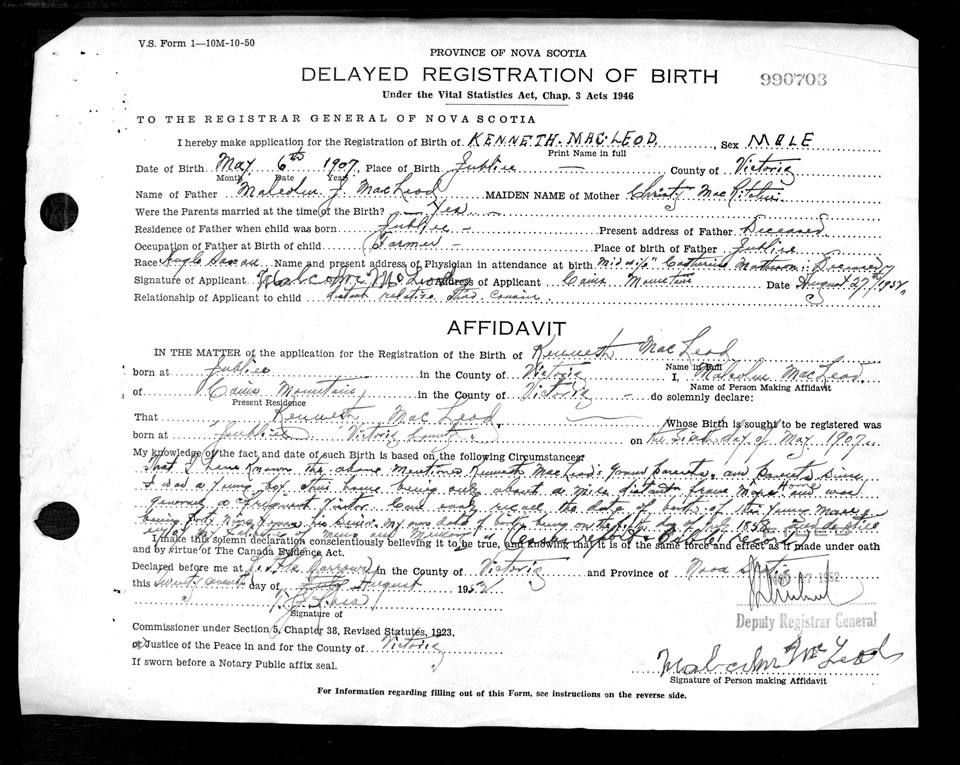 V.S. Form 1—10M-10-50
PROVINCE OF NOVA SCOTIA
DELAYED REGISTRATION OF BIRTH
990703
Under the Vital Statistics Act, Chap. 3 Acts 1946
TO THE REGISTRAR GENERAL OF NOVA SCOTIA
I hereby make application for the Registration of Birth of KENNETH. MAC.LEOD, Sex MALE
Print Name in full
Date of Birth May 6th 1907, Place of Birth Jubliee — County of Victoria
Month Date Year
Name of Father Malcolm J. MacLeod MAIDEN NAME of Mother Christy Mac
Were the Parents married at the time of the Birth? — Yes —
Residence of Father when child was born Jubliee - Present address of Father Deceased
Occupation of Father at Birth of child Farmer - Place of birth of Father Jubliee
Race Name and present address of Physician in attendance at birth Midwife Deceased
Signature of Applicant Malcolm McLeod Address of Applicant Cains Mountain Date August 27th 1952
Relationship of Applicant to child distant relative third cousin
AFFIDAVIT
IN THE MATTER of the application for the Registration of the Birth of Kenneth MacLeod
Name in Full
born at Jubliee in the County of Victoria I, Malcolm MacLeod
Name of Person Making Affidavit
of Cains Mountain, in the County of Victoria - do solemnly declare:
Present Residence
That Kenneth MacLeod — Whose Birth is sought to be registered was
born at Jubliee Victoria County on the Sixth day of May 1907.
My knowledge of the fact and date of such Birth is based on the following Circumstances:
That I have Known the above mentioned Kenneth MacLeod's Grand parents, and Parents Since
I was a Young boy, their home being only about a mile distant from my home and was
a frequent visitor Can easly recall the date of birth of this Young Man
being forty nine years his Senior my own date of birth being on the day of 1858
of my
I make this solemn declaration conscientiously believing it to be true, and knowing that it is of the same force and effect as if made under oath
and by virtue of The Canada Evidence Act.
Declared before me at Little Narrows in the County of Victoria and Province of Nova Scotia
this twenty seventh day of August 1952
1952
Signature of
Deputy Registrar General
Commissioner under Section 5, Chapter 38, Revised Statutes, 1923,
or Justice of the Peace in and for the County of Victoria
If sworn before a Notary Public affix seal.
Malcolm McLeod
Signature of Person making Affidavit
For Information regarding filling out of this Form, see instructions on the reverse side.